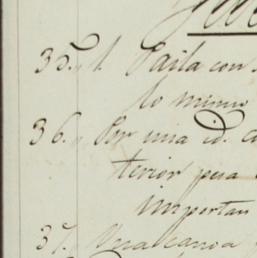 35. 1. Paila con
lo mismo
36. Por una id. a
terior pesa
importan
37. Una canoa